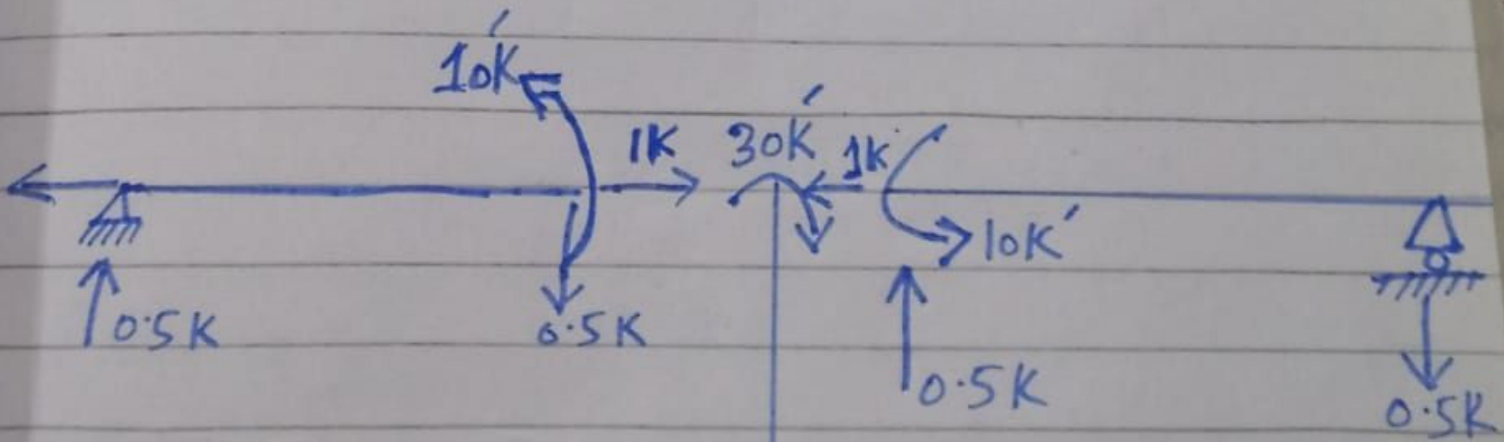 10K'
1K 30K' 1K
10K'
0.5K 0.5K
0.5K 0.5K